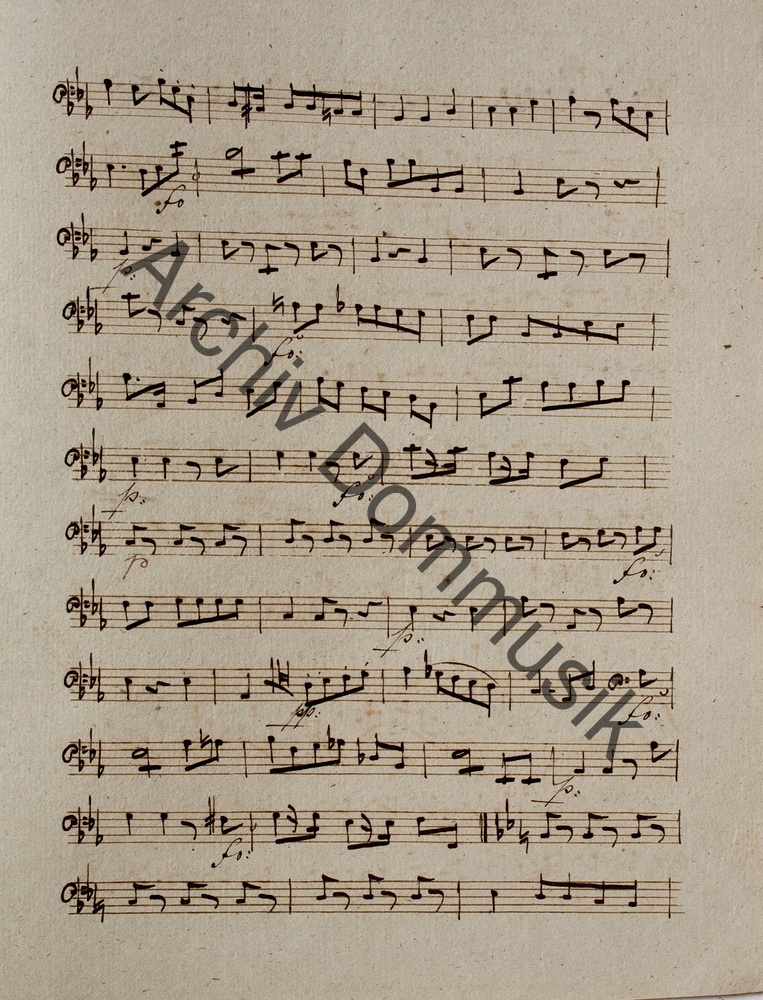 fo
p:
fo:
p:
fo:
p
fo:
p:
pp:
fo:
p:
fo:
Archiv Dommusik